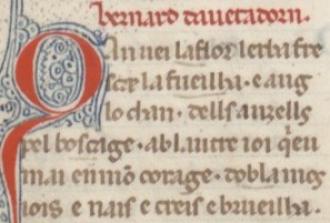 bernard daventadorn.
Qan vei la flor lerba fre
sca e la fueilha. e aug
lo chan. dells auzells
pel boscage. ab lautre ioi q̃eu
nai en mõ corage. dobla mos
iois. e nais e creis e brueilha.